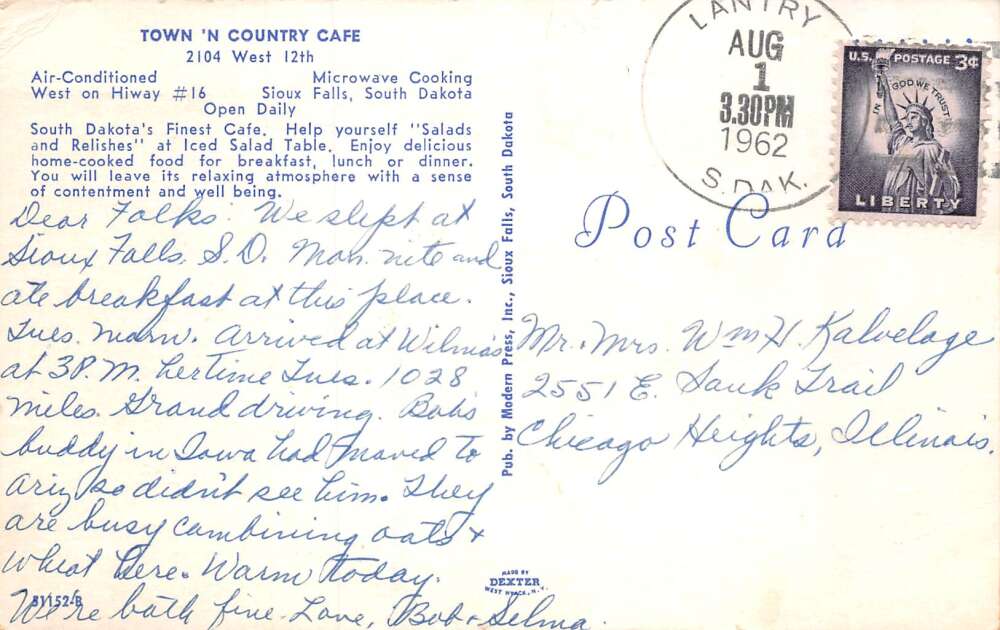 TOWN 'N COUNTRY CAFE
2104 West 12th
Air-Conditioned Microwave Cooking
West on Hiway #16 Sioux Falls, South Dakota
Open Daily
South Dakota's Finest Cafe. Help yourself "Salads
and Relishes" at Iced Salad Table. Enjoy delicious
home-cooked food for breakfast, lunch or dinner.
You will leave its relaxing atmosphere with a sense
of contentment and well being.
Dear Folks: We slept at
Sioux Falls, S.D. Mon. nite and
ate breakfast at this place.
Tues. morn. Arrived at Wilma's
at 3 P.M. her time Tues. 1028
miles. Grand driving. Bob's
buddy in Iowa had moved to
Ariz so didn't see him. They
are busy combining oats +
wheat here. Warm today.
We're both fine. Love, Bob + Selma.
SY152-B
Pub. by Modern Press, Inc., Sioux Falls, South Dakota
MADE BY
DEXTER
WEST NYACK, N.Y.
LANTRY
AUG
1
3.30PM
1962
S.DAK.
U.S. POSTAGE 3¢
IN GOD WE TRUST
LIBERTY
Post Card
Mr. Mrs. Wm H. Kalvelage
2551 E. Sauk Trail
Chicago Heights, Illinois.